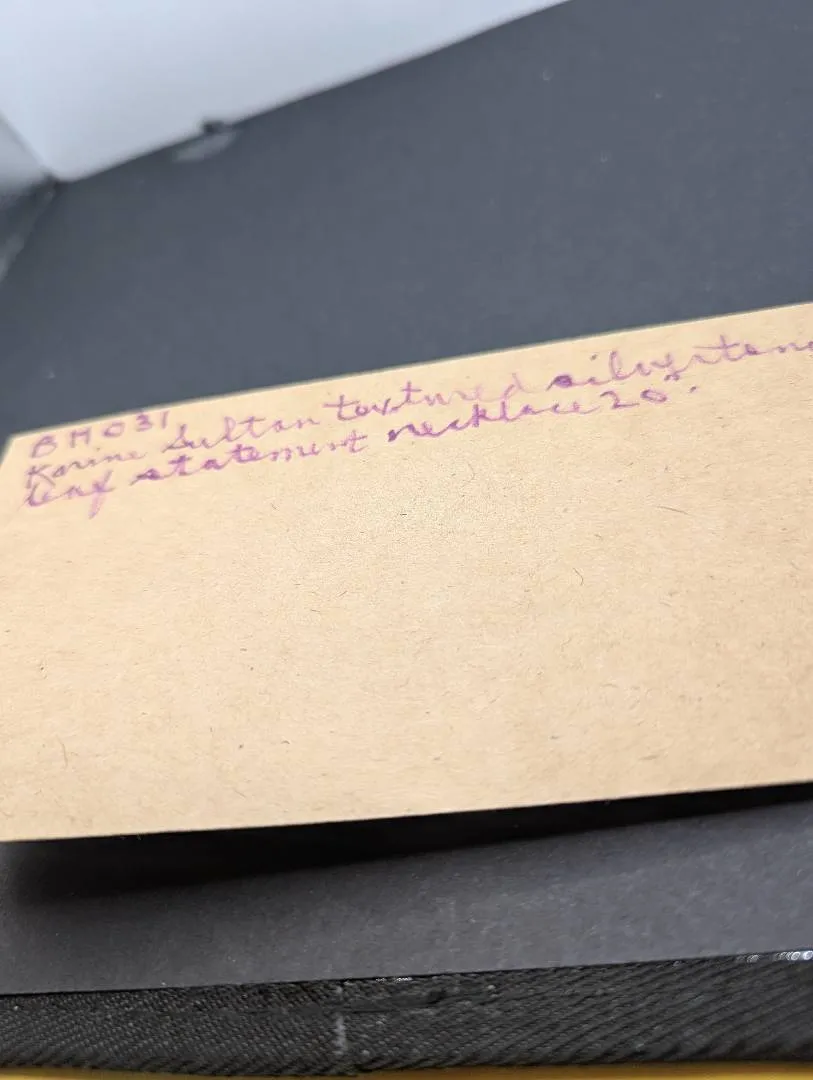 BH031
Karine Sultan textured silvertone
leaf statement necklace 20".